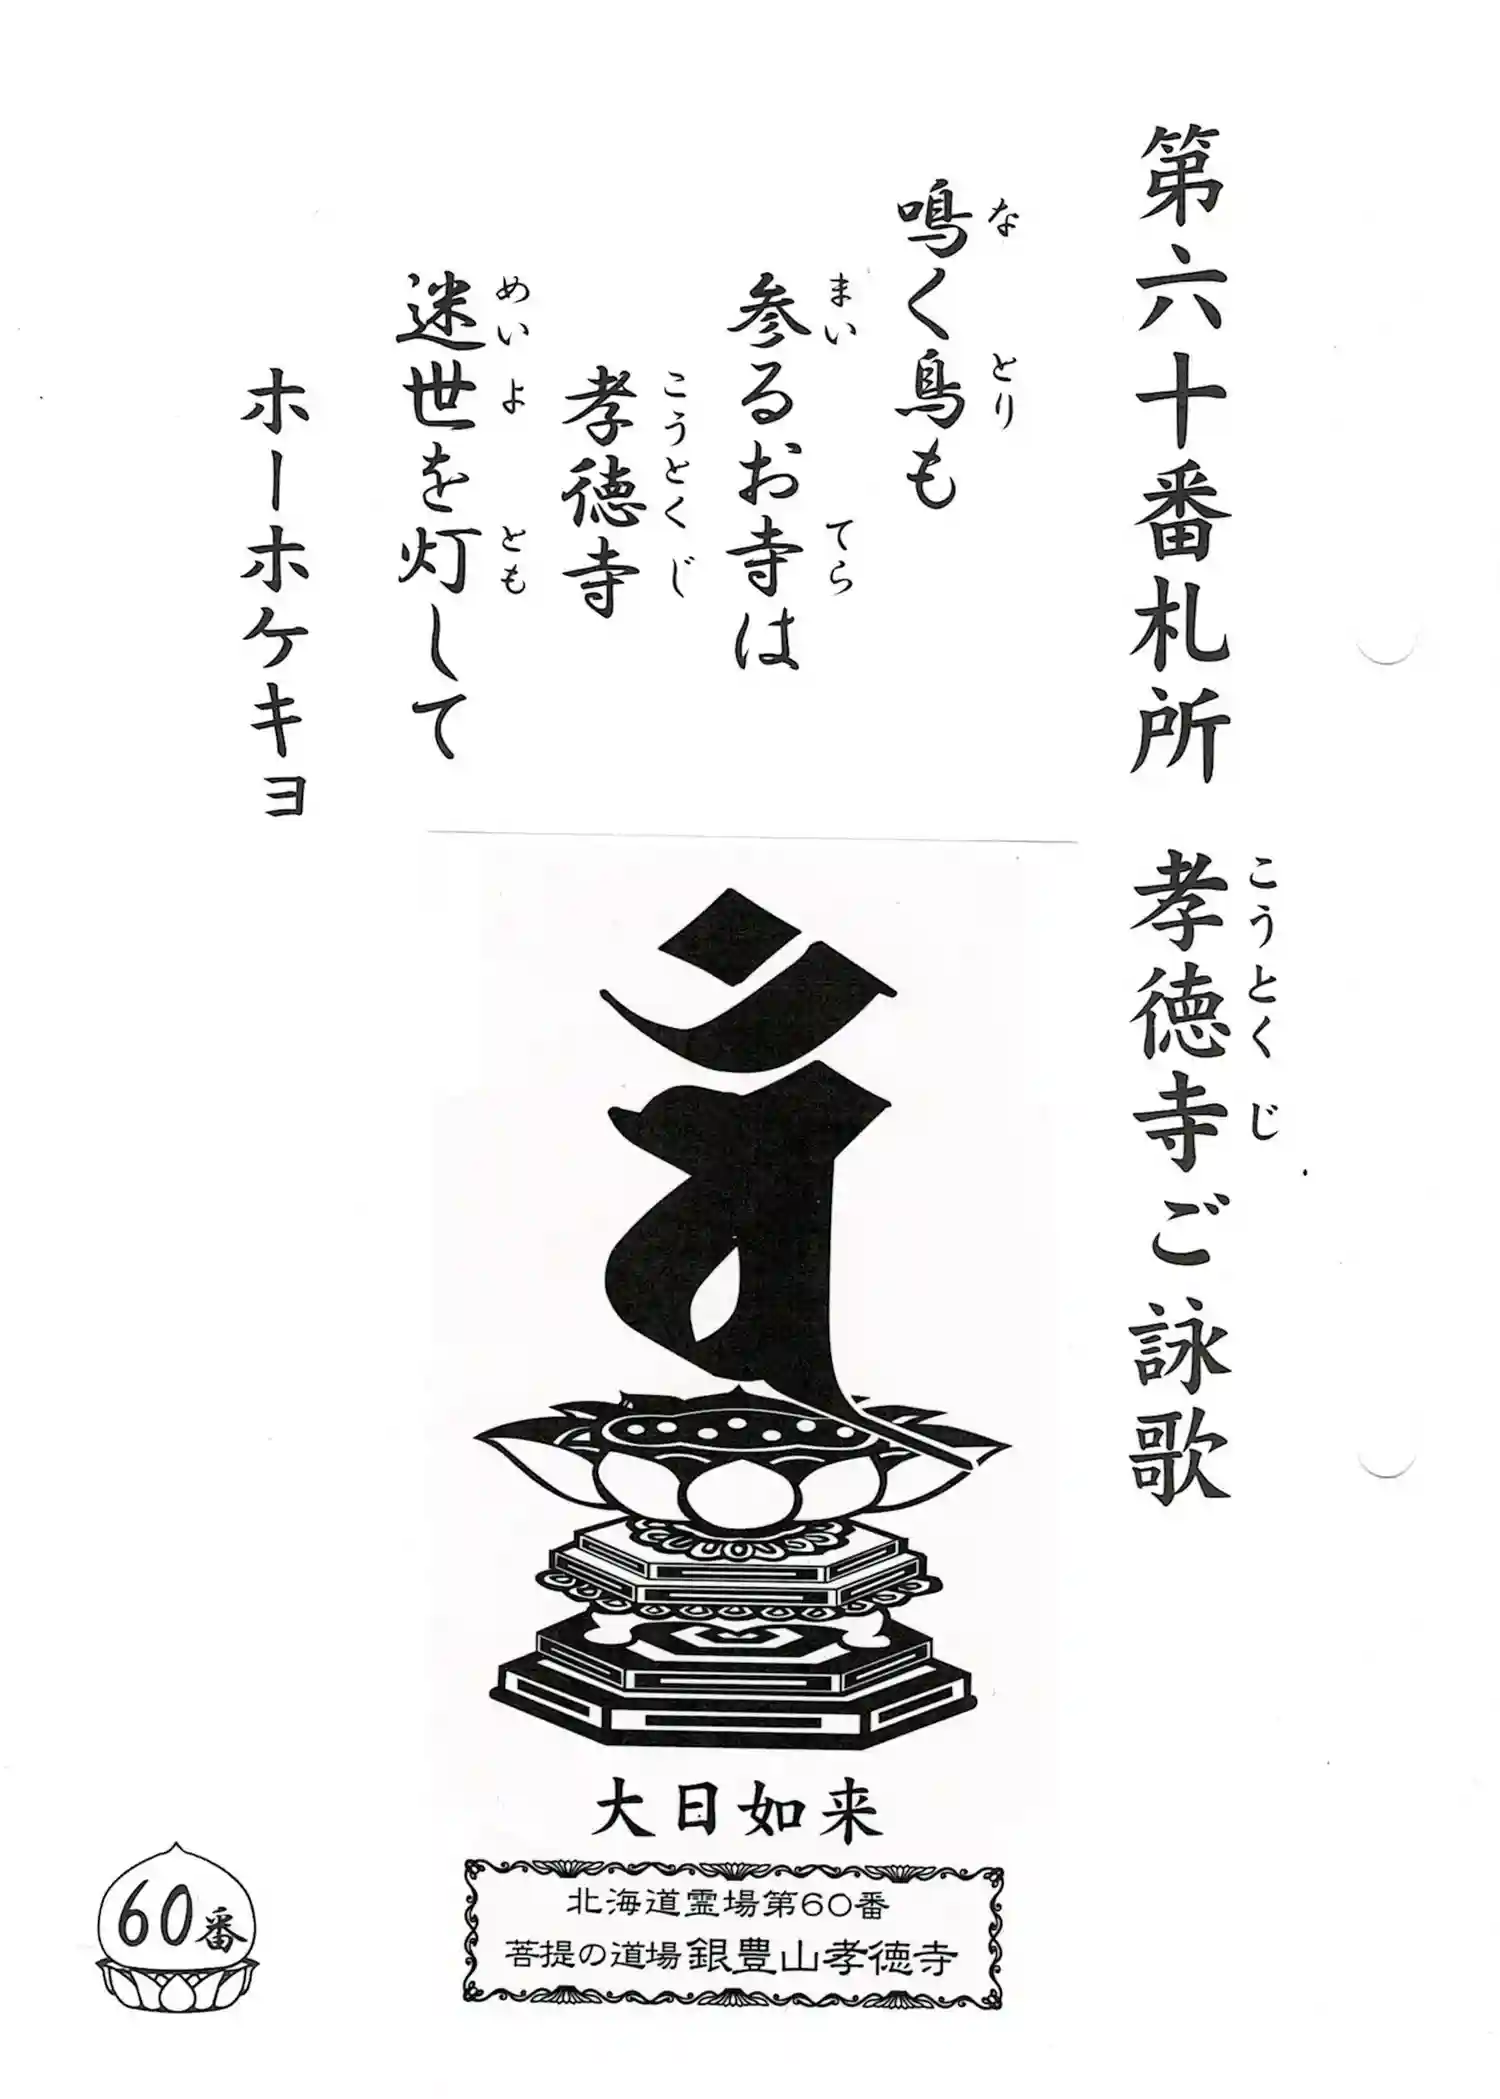 第六十番札所 孝徳寺ご詠歌
こうとくじ
鳴く鳥も
な とり
参るお寺は
まい てら
孝徳寺
こうとくじ
迷世を灯して
めいよ とも
ホーホケキョ
大日如来
北海道霊場第60番
菩提の道場 銀豊山孝徳寺
60番